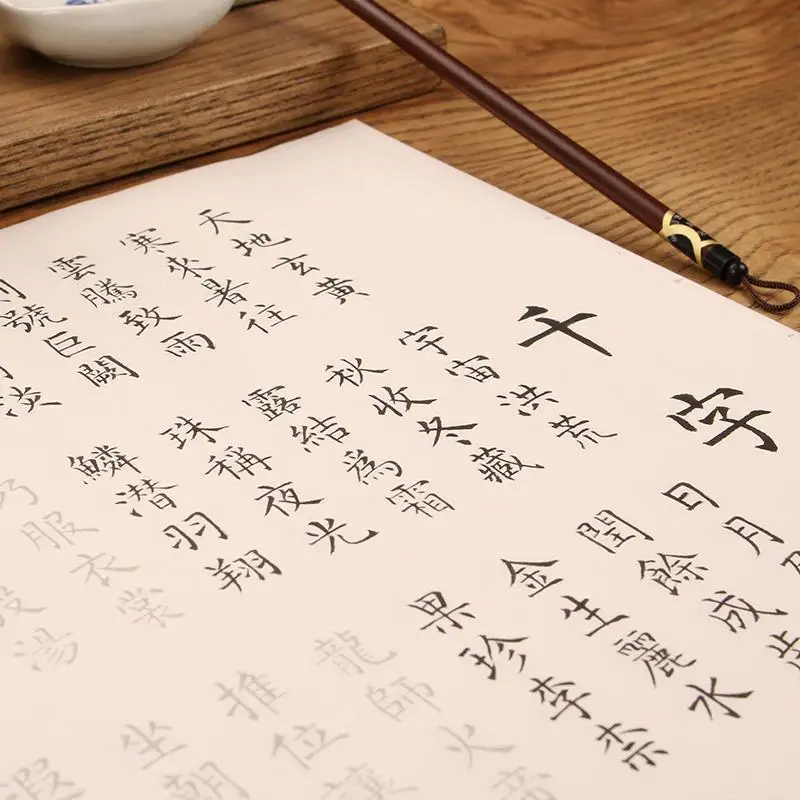 千字
天地玄黃
寒來暑往
雲騰致雨
號巨闕
淡
宇宙洪荒
秋收冬藏
露結爲霜
珠稱夜光
鱗潛羽翔
服衣裳
殷湯
日月
閏餘成歲
金生麗水
果珍李柰
龍師火帝
推位讓
坐朝
遐